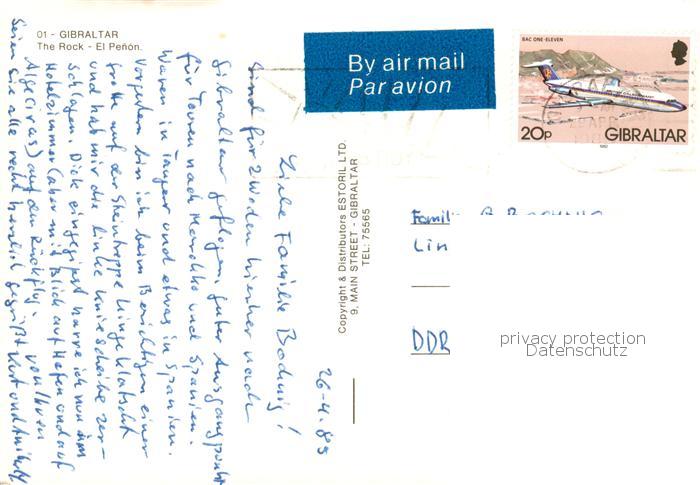 01 - GIBRALTAR
The Rock - El Peñón.
By air mail
Par avion
BAC ONE-ELEVEN
20p GIBRALTAR
1982
Copyright & Distributors ESTORIL LTD.
9, MAIN STREET - GIBRALTAR
TEL: 75565
26-4.83
Liebe Familie
sind für 2 Wochen hierher nach
Gibraltar geflogen, guter Ausgangspunkt
für Touren nach Marokko und Spanien.
Waren in Tanger und etwas in Spanien.
Vorgestern bin ich beim Besichtigen einer
Grotte auf der Steintreppe hingeklatscht
und hab mir die linke Kniescheibe zer-
schlagen. Dick eingegipst harre ich nun im
Hotelzimmer (aber mit Blick auf Hafen und auf
Algeciras) auf den Rückflug.
Seien Sie alle recht herzlich gegrüßt von Ihren
Famil
Lin
DDR
privacy protection
Datenschutz